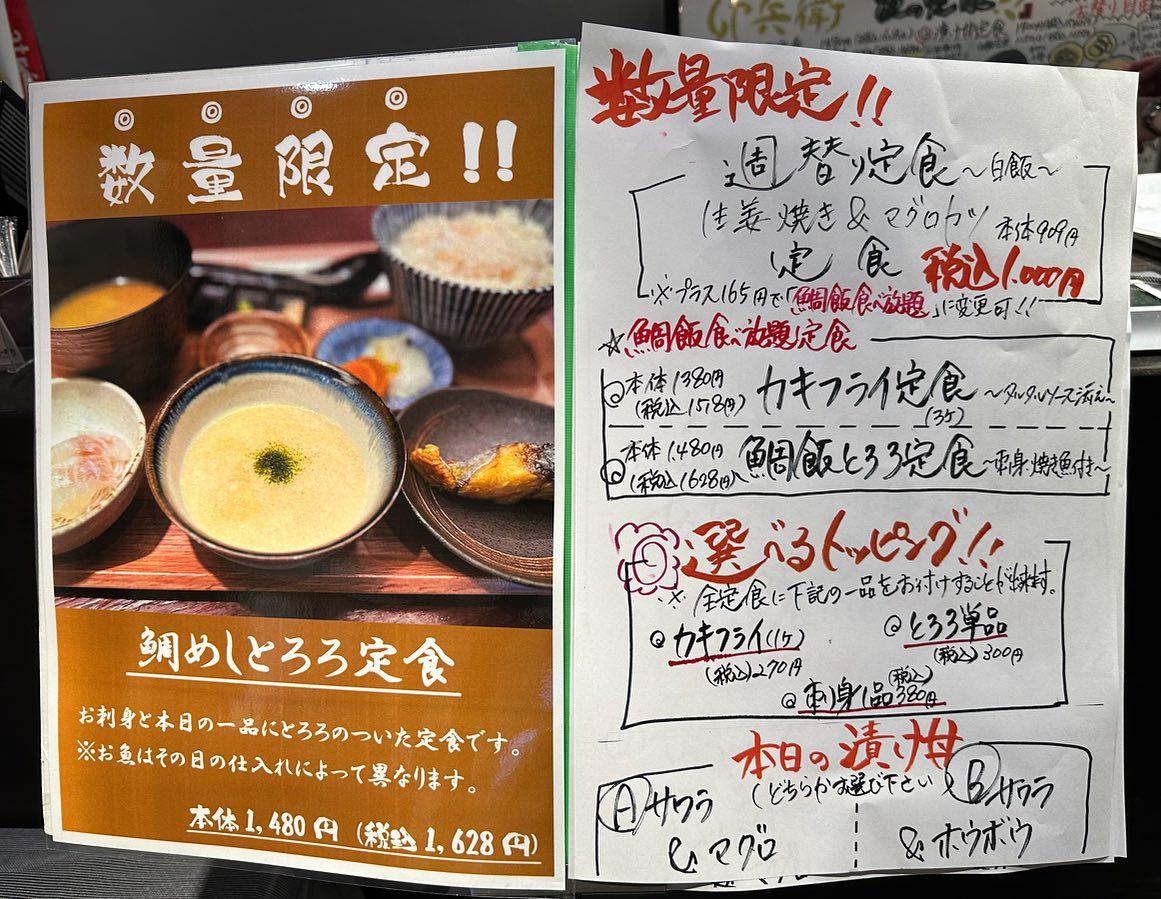 数量限定!!
鯛めしとろろ定食
お刺身と本日の一品にとろろのついた定食です。
※お魚はその日の仕入れによって異なります。
本体1,480円(税込1,628円)
数量限定!!
週替り定食~白飯~
生姜焼き&マグロカツ
本体909円
定食 税込1.000円
※プラス165円で「鯛飯食べ放題」に変更可!!
☆鯛飯食べ放題定食
本体1380円
(税込1518円)
カキフライ定食
(3ケ)
~タルタルソース添え~
本体1.480円
(税込1628円)
鯛飯とろろ定食
~刺身・焼き魚付き~
選べるトッピング!!
※全定食に下記の一品をお付けすることが出来ます。
カキフライ(1ケ)
(税込)270円
とろろ単品
(税込)300円
(税込)
刺身1品380円
本日の漬け丼
(どちらかお選び下さい
Aサワラ
&マグロ
Bサワラ
&ホウボウ